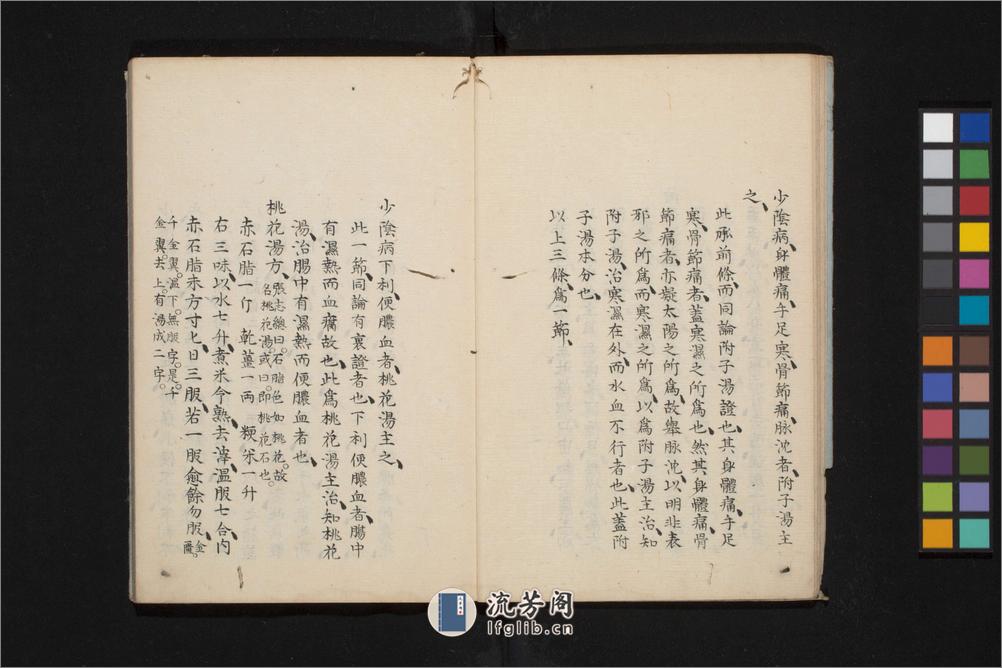 少陰病、身體痛、手足寒、骨節痛、脉沈者、附子湯主
之、
此承前條、而同論附子湯證也、其身體痛、手足
寒、骨節痛者、蓋寒濕之所爲也、然其身體痛、骨
節痛者、亦疑太陽之所爲、故舉脉沈、以明非表
邪之所爲、而寒濕之所爲、以爲附子湯主治、知
附子湯、治寒濕在外、而水血不行者也、此蓋附
子湯本分也、
以上三條、爲一節、
少陰病下利、便膿血者、桃花湯主之、
此一節、同論有裏證者也、下利便膿血者、腸中
有濕熱而血腐故也、此爲桃花湯主治、知桃花
湯、治腸中有濕熱、而便膿血者也、
桃花湯方、張志總曰。石脂色如桃花。故
名桃花湯。或曰。即桃花石也。
赤石脂一斤 乾薑一兩 粳米一升
右三味、以水七升、煮米令熟、去滓、溫服七合、内
赤石脂末方寸匕、日三服、若一服愈、餘勿服、金
匱。
千金翼。溫下。無服字。是。千
金翼。去上。有湯成二字。
流芳阁
lfglib.cn